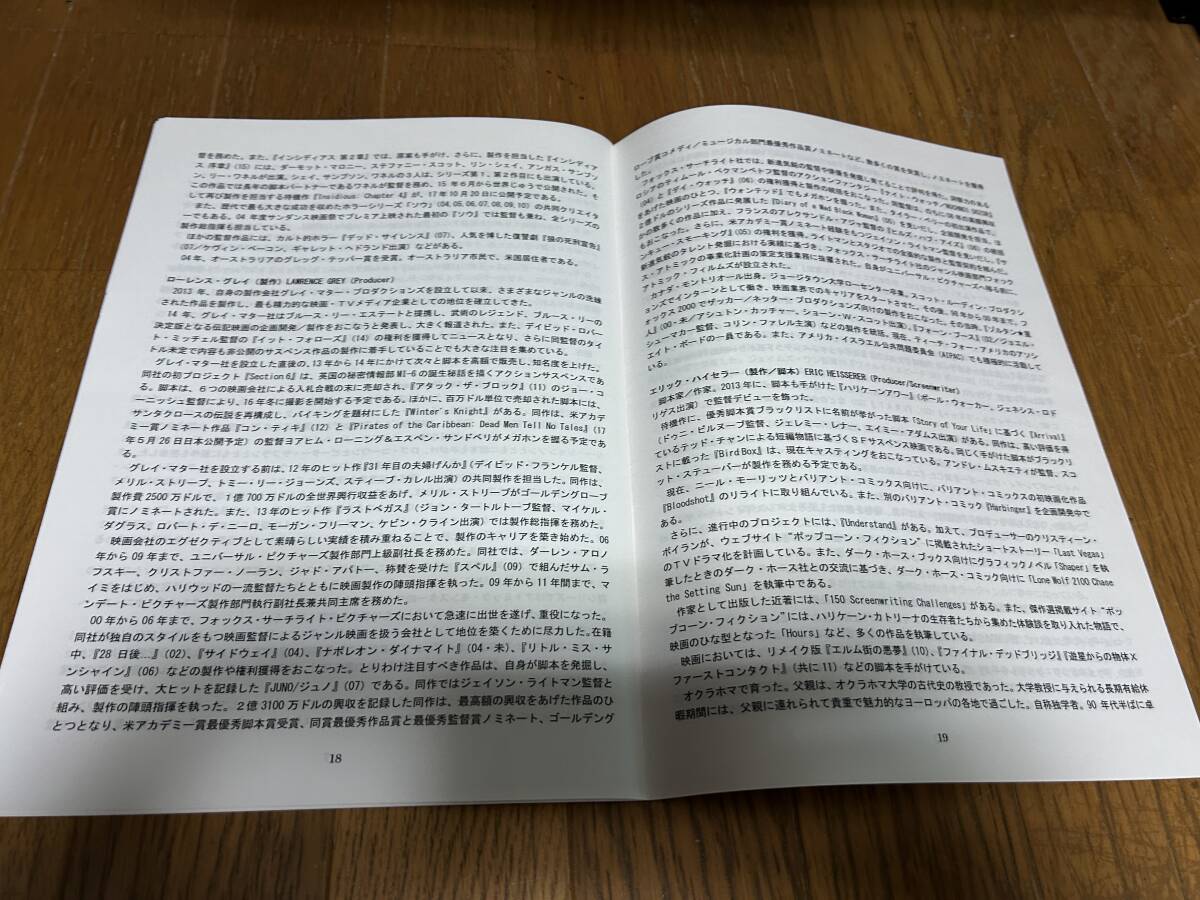 督を務めた。また、『インシディアス 第2章』では、原案も手がけ、さらに、製作を担当した『インシディア
ス 序章』(15)には、ダーモット・マロニー、ステファニー・スコット、リン・シェイ、アンガス・サンプソ
ン、リー・ワネルが出演。シェイ、サンプソン、ワネルの3人は、シリーズ第1、第2作目にも出演している。
この作品では長年の脚本パートナーであるワネルが監督を務め、15年6月から世界じゅうで公開された。そ
して再び製作を担当する待機作『Insidious: Chapter 4』が、17年10月20日に公開予定である。
また、歴代で最も大きな成功を収めたホラーシリーズ『ソウ』(04,05,06,07,08,09,10)の共同クリエイタ
ーでもある。04年度サンダンス映画祭でプレミア上映された最初の『ソウ』では監督も兼ね、全シリーズの
製作総指揮も担当している。
ほかの監督作品には、カルト的ホラー『デッド・サイレンス』(07)、人気を博した復讐劇『狼の死刑宣告』
(07/ケヴィン・ベーコン、ギャレット・ヘドランド出演)などがある。
04年、オーストラリアのグレッグ・テッパー賞を受賞。オーストラリア市民で、米国居住者である。
ローレンス・グレイ(製作) LAWRENCE GREY (Producer)
2013年、自身の製作会社グレイ・マター・プロダクションズを設立して以来、さまざまなジャンルの洗練
された作品を製作し、最も精力的な映画・TVメディア企業としての地位を確立してきた。
14年、グレイ・マター社はブルース・リー・エステートと提携し、武術のレジェンド、ブルース・リーの
決定版となる伝記映画の企画開発/製作をおこなうと発表し、大きく報道された。また、デイビッド・ロバー
ト・ミッチェル監督の『イット・フォローズ』(14)の権利を獲得してニュースとなり、さらに同監督のタイ
トル未定で内容も非公開のサスペンス作品の製作に着手していることでも大きな注目を集めている。
グレイ・マター社を設立した直後の、13年から14年にかけて次々と脚本を高額で販売し、知名度を上げた。
同社の初プロジェクト『Section 6』は、英国の秘密情報部MI-6の誕生秘話を描くアクションサスペンスであ
る。脚本は、6つの映画会社による入札合戦の末に売却され、『アタック・ザ・ブロック』(11)のジョー・コ
ーニッシュ監督により、16年冬に撮影を開始する予定である。ほかに、百万ドル単位で売却された脚本には、
サンタクロースの伝説を再構成し、バイキングを題材にした『Winter's Knight』がある。同作は、米アカデ
ミー賞ノミネート作品『コン・ティキ』(12)と『Pirates of the Caribbean: Dead Men Tell No Tales』(17
年5月26日日本公開予定)の監督ヨアヒム・ローニング&エスペン・サンドベリがメガホンを握る予定であ
る。
グレイ・マター社を設立する前は、12年のヒット作『31年目の夫婦げんか』(デイビッド・フランケル監督、
メリル・ストリープ、トミー・リー・ジョーンズ、スティーブ・カレル出演)の共同製作を担当した。同作は、
製作費2500万ドルで、1億700万ドルの全世界興行収益をあげ、メリル・ストリープがゴールデングローブ
賞にノミネートされた。また、13年のヒット作『ラストベガス』(ジョン・タートルトーブ監督、マイケル・
ダグラス、ロバート・デ・ニーロ、モーガン・フリーマン、ケビン・クライン出演)では製作総指揮を務めた。
映画会社のエグゼクティブとして素晴らしい実績を積み重ねることで、製作のキャリアを築き始めた。06
年から09年まで、ユニバーサル・ピクチャーズ製作部門上級副社長を務めた。同社では、ダーレン・アロノ
フスキー、クリストファー・ノーラン、ジャド・アパトー、称賛を受けた『スペル』(09)で組んだサム・ラ
イミをはじめ、ハリウッドの一流監督たちとともに映画製作の陣頭指揮を執った。09年から11年間まで、マ
ンデート・ピクチャーズ製作部門執行副社長兼共同主席を務めた。
00年から06年まで、フォックス・サーチライト・ピクチャーズにおいて急速に出世を遂げ、重役になった。
同社が独自のスタイルをもつ映画監督によるジャンル映画を扱う会社として地位を築くために尽力した。在籍
中、『28日後...』(02)、『サイドウェイ』(04)、『ナポレオン・ダイナマイト』(04・未)、『リトル・ミス・サ
ンシャイン』(06)などの製作や権利獲得をおこなった。とりわけ注目すべき作品は、自身が脚本を発掘し、
高い評価を受け、大ヒットを記録した『JUNO/ジュノ』(07)である。同作ではジェイソン・ライトマン監督と
組み、製作の陣頭指揮を執った。2億3100万ドルの興収を記録した同作は、最高額の興収をあげた作品のひ
とつとなり、米アカデミー賞最優秀脚本賞受賞、同賞最優秀作品賞と最優秀監督賞ノミネート、ゴールデング
18
ローブ賞コメディ/ミュージカル部門最優秀作品賞ノミネートなど、数多くの賞を受賞し、ノミネートを獲得
した。
フォックス・サーチライト社では、新進気鋭の監督や
ロシアのティムール・ベクマンベトフ監督のアクションファンタジー『ナイト・ウォッチ/NOCHNOI DOZOR』
『デイ・ウォッチ』(06)の権利獲得と製作の統括をおこなった。
をあげた映画のひとつ、『ウォンテッド』でもメガホンを握った。また、タイラー・ペリー
2億ドルのシリーズ作品に発展した『Diary of a Mad Black Woman』(05)
かの数多くの作品に加え、フランスのアレクサンドル・アジャ監督の『ヒルズ・ハブ・アイズ』(06)の統括
もおこなった。さらに、米アカデミー賞ノミネート経験をもつジェイソン・ライトマン監督を見いだし、『サ
ンキュー・スモーキング』(05)の権利を獲得。
新進気鋭のタレント発掘における実績に基づき、フォックス・サーチライト社のジャンル映画部門フォック
ス・アトミックの事業化計画の策定支援業務に抜擢された。自身がユニバーサル・ピクチャーズへ移る前に、
アトミック・フィルムズが設立された。
カナダ・モントリオール出身。ジョージタウン大学ローセンター卒業。スコット・ルーディン・プロダクシ
ョンズでインターンとして働き、映画業界でのキャリアをスタートさせた。その後、98年から00年まで、フ
ォックス2000でザッカー/ネッター・プロダクションズ向けの製作をおこなった。その当時、『ゾルタン★星
人』(00・未/アシュトン・カッチャー、ショーン・W・スコット出演)、『フォーン・ブース』(02/ジョエル・
シューマカー監督、コリン・ファレル主演)などの製作を統括。現在、ティーチ・フォー・アメリカのアソシ
エイト・ボードの一員である。また、アメリカ・イスラエル公共問題委員会(AIPAC)でも積極的に活動して
いる。
エリック・ハイセラー(製作/脚本) ERIC HEISSERER (Producer/Screenwriter)
脚本家/作家。2013年に、脚本も手がけた『ハリケーンアワー』(ポール・ウォーカー、ジェネシス・ロド
リゲス出演)で監督デビューを飾った。
待機作に、優秀脚本賞ブラックリストに名前が挙がった脚本「Story of Your Life」に基づく『Arrival』
(ドゥニ・ビルヌーブ監督、ジェレミー・レナー、エイミー・アダムス出演)がある。同作は、高い評価を得
ているテッド・チャンによる短編物語に基づくSFサスペンス映画である。同じく手がけた脚本がブラックリ
ストに載った『Bird Box』は、現在キャスティングをおこなっている。アンドレ・ムスキエティが監督、スコ
ット・ステューバーが製作を務める予定である。
現在、ニール・モーリッツとバリアント・コミックス向けに、バリアント・コミックスの初映画化作品
『Bloodshot』のリライトに取り組んでいる。また、別のバリアント・コミック『Harbinger』を企画開発中で
ある。
さらに、進行中のプロジェクトには、『Understand』がある。加えて、プロデューサーのクリスティーン・
ボイランが、ウェブサイト“ポップコーン・フィクション”に掲載されたショートストーリー「Last Vegas」
のTVドラマ化を計画している。また、ダーク・ホース・ブックス向けにグラフィックノベル「Shaper」を執
筆したときのダーク・ホース社との交流に基づき、ダーク・ホース・コミック向けに「Lone Wolf 2100 Chase
the Setting Sun」を執筆中である。
作家として出版した近著には、「150 Screenwriting Challenges」がある。また、傑作選掲載サイト“ポッ
プコーン・フィクション”には、ハリケーン・カトリーナの生存者たちから集めた体験談を取り入れた物語で、
映画のひな型となった「Hours」など、多くの作品を執筆している。
映画においては、リメイク版『エルム街の悪夢』(10)、『ファイナル・デッドブリッジ』『遊星からの物体X
ファーストコンタクト』(共に11)などの脚本を手がけている。
オクラホマで育った。父親は、オクラホマ大学の古代史の教授であった。大学教授に与えられる長期有給休
暇期間には、父親に連れられて貴重で魅力的なヨーロッパの各地で過ごした。自称独学者。90年代半ばに卓
19